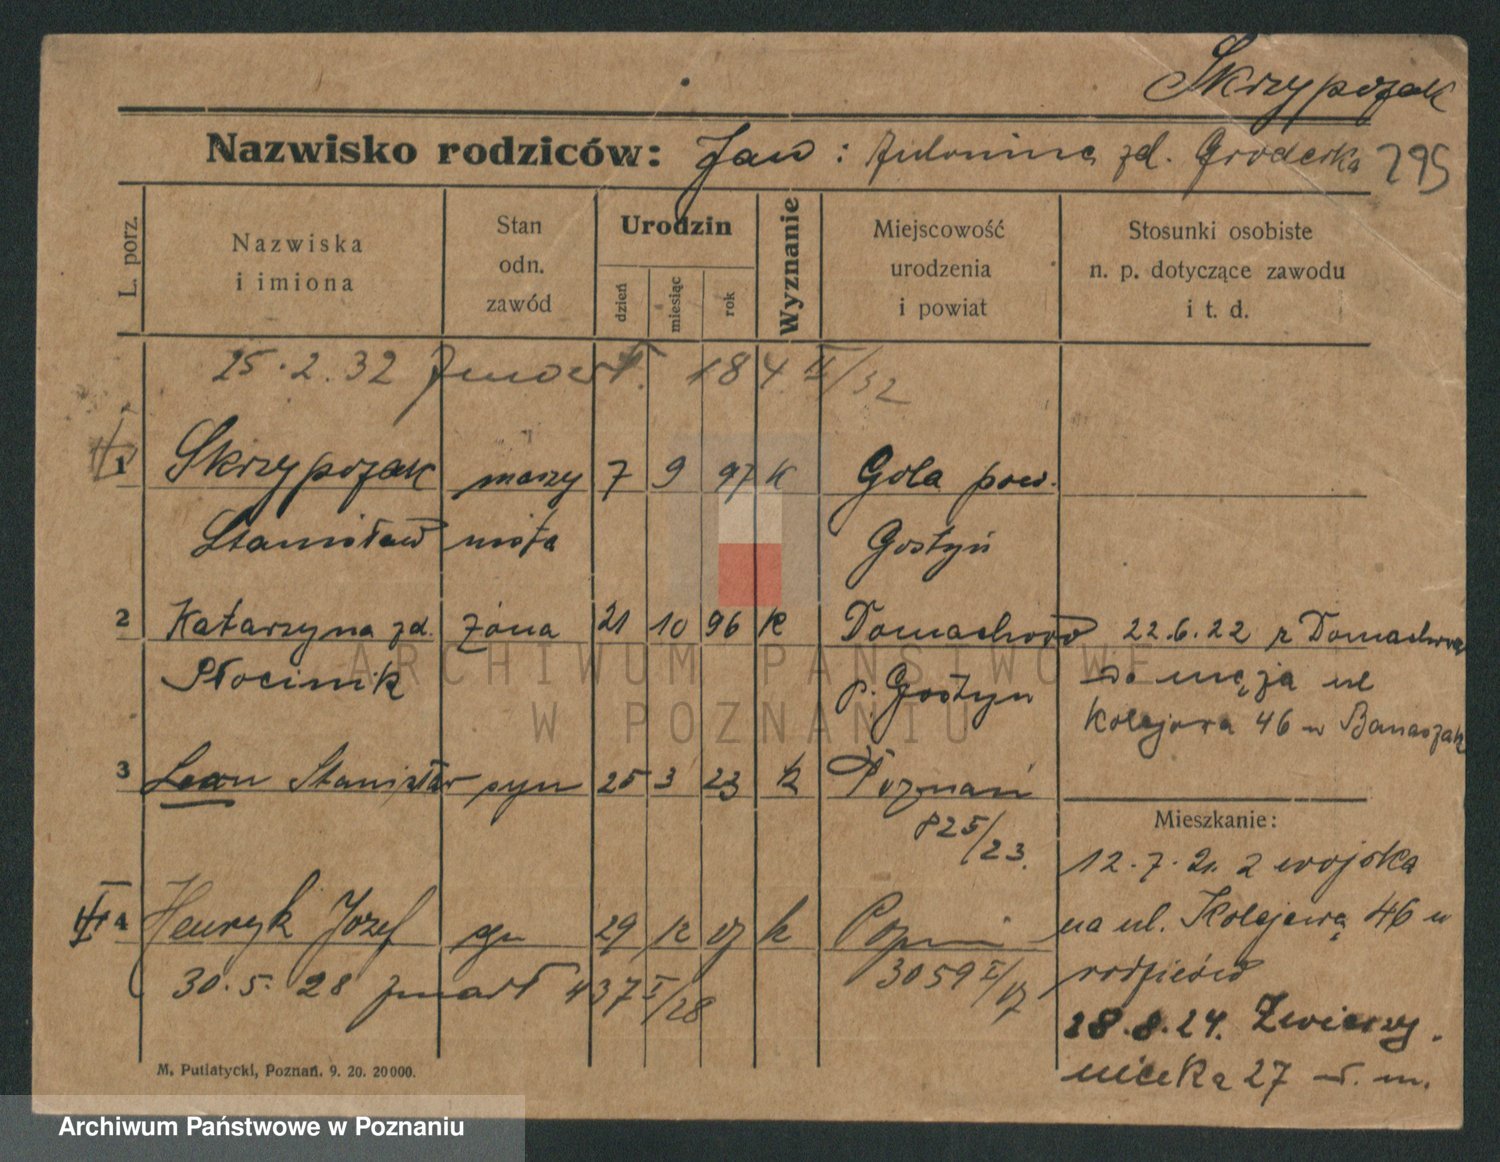 Skrzypczak
Nazwisko rodziców: Jan : zd. Groderka 295
L. porz.
Nazwiska
i imiona
Stan
odn.
zawód
Urodzin
dzień
miesiąc
rok
Wyznanie
Miejscowość
urodzenia
i powiat
Stosunki osobiste
n. p. dotyczące zawodu
i t. d.
25.2.32 184 II/32
1 Skrzypczak maszy 7 9 97 k Gola pow.
Stanisław nista Gostyń
2 Katarzyna zd. żona 21 10 96 k Domachowo 22.6.22 z Domachowa
Płocinik p. Gostyn do męża ul
Kolejowa 46 u Banaszak
3 Leon Stanisław syn 25 3 23 k Poznań
825/23.
Mieszkanie:
12.7.21. z wojska
II 4 Henryk Józef syn 29 12 27 k Poznań na ul. Kolejową 46 u
30.5.28 zmarł 437 I/28 3059 I/27 rodziców
28.8.24. Zwierzy-
niecka 27 n. m.
M. Putiatycki, Poznań. 9. 20. 20000.
ARCHIWUM PAŃSTWOWE
W POZNANIU
Archiwum Państwowe w Poznaniu